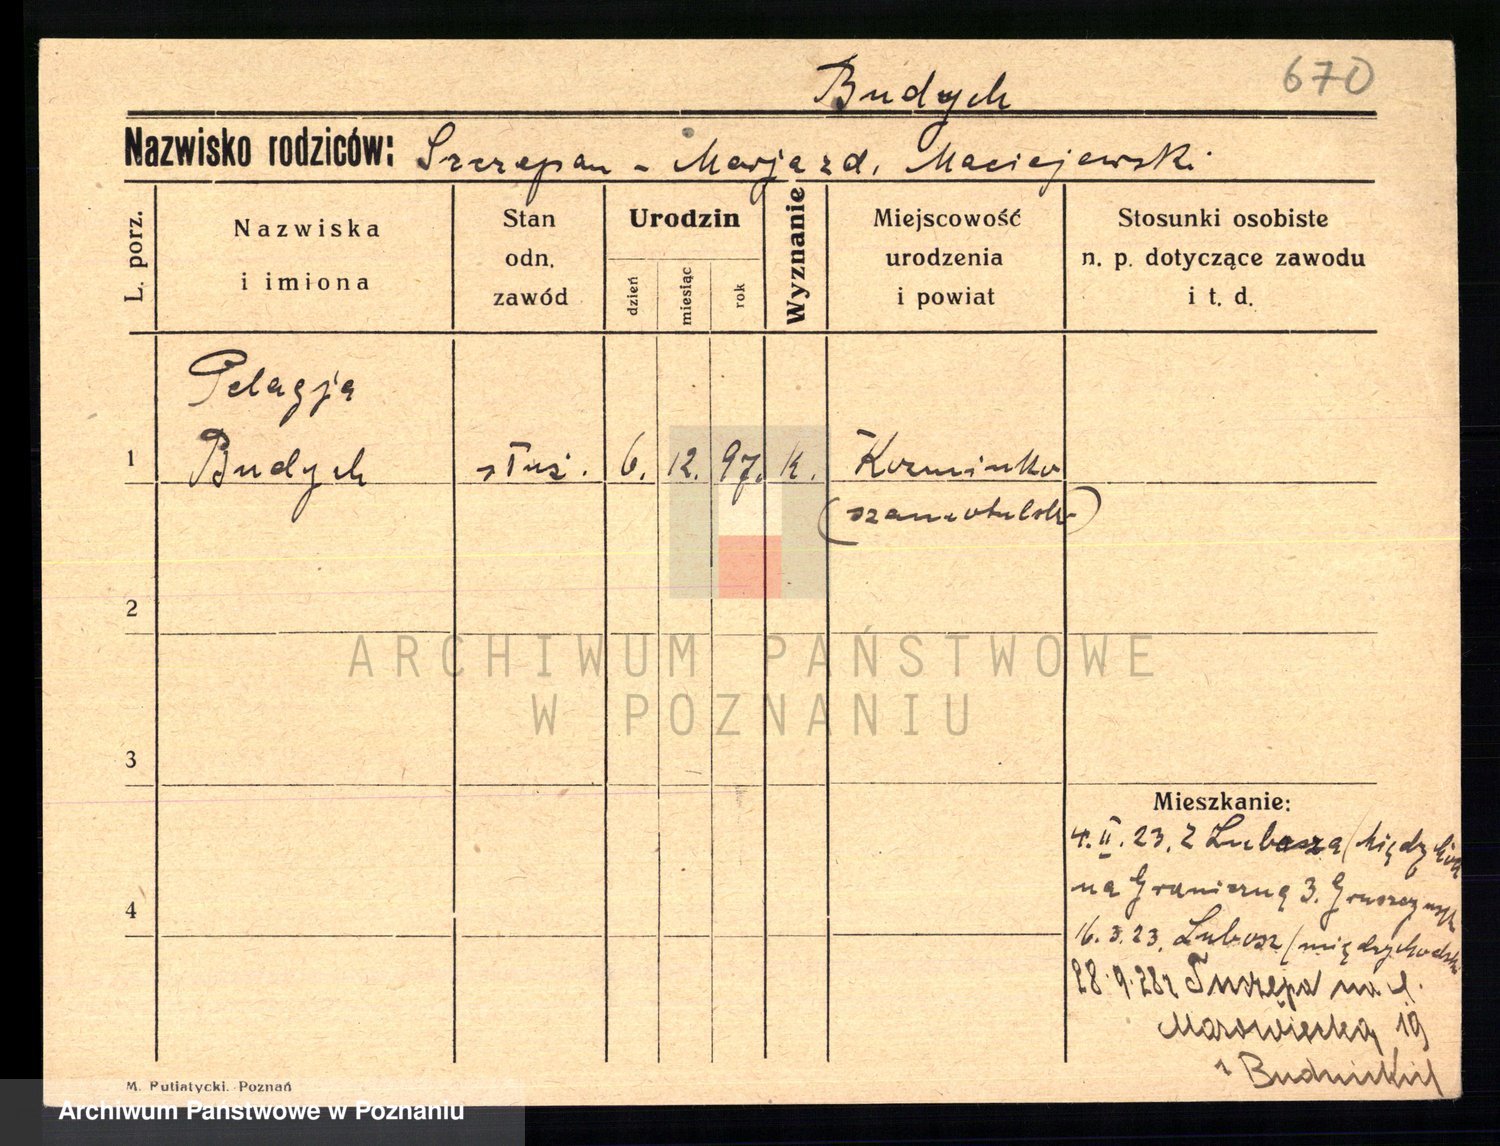 Budych
670
Nazwisko rodziców: Szczepan - Marja zd. Maciejewski
L. porz.
Nazwiska
i imiona
Stan
odn.
zawód
Urodzin
dzień
miesiąc
rok
Wyznanie
Miejscowość
urodzenia
i powiat
Stosunki osobiste
n. p. dotyczące zawodu
i t. d.
Pelagja
1 Budych służ. 6. 12. 97. k. Kozminko
(szamotulski)
2
ARCHIWUM PAŃSTWOWE
W POZNANIU
3
Mieszkanie:
4. II. 23. z Lubosza (międzychodz
na Graniczną 3.
4
16. 3. 23. Lubosz (międzychodzki
28.9.28r na
Mazowiecką 19
M. Putiatycki. Poznań
Archiwum Państwowe w Poznaniu